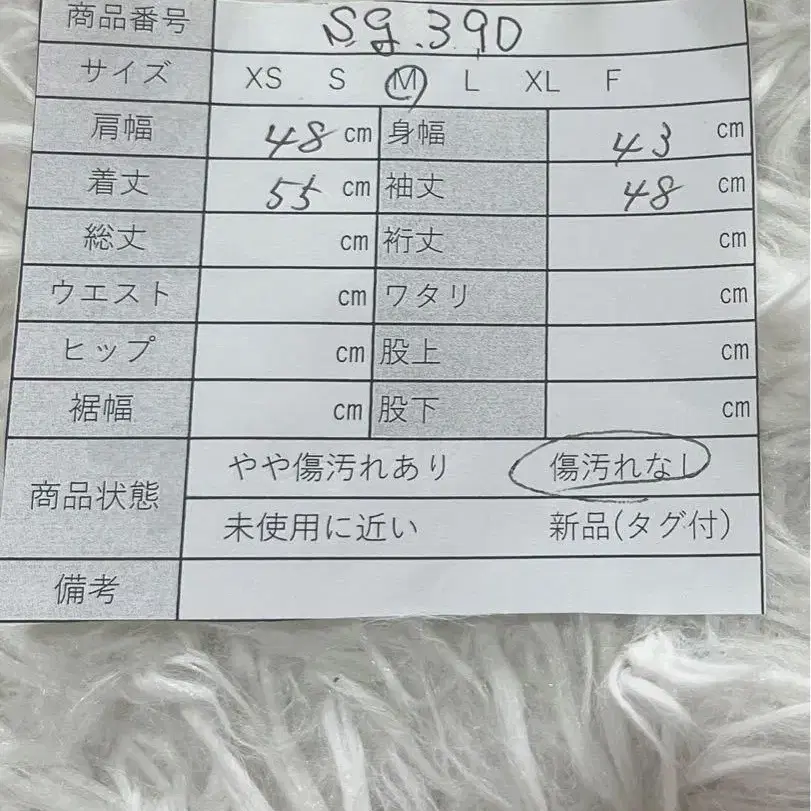 商品番号 Sg.390
サイズ XS S M L XL F
肩幅 48 cm 身幅 43 cm
着丈 55 cm 袖丈 48 cm
総丈 cm 裄丈 cm
ウエスト cm ワタリ cm
ヒップ cm 股上 cm
裾幅 cm 股下 cm
商品状態 やや傷汚れあり 傷汚れなし
未使用に近い 新品(タグ付)
備考